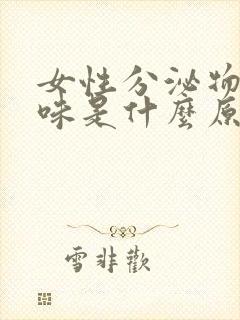 女性分泌物
味是什麼原
雪非歡